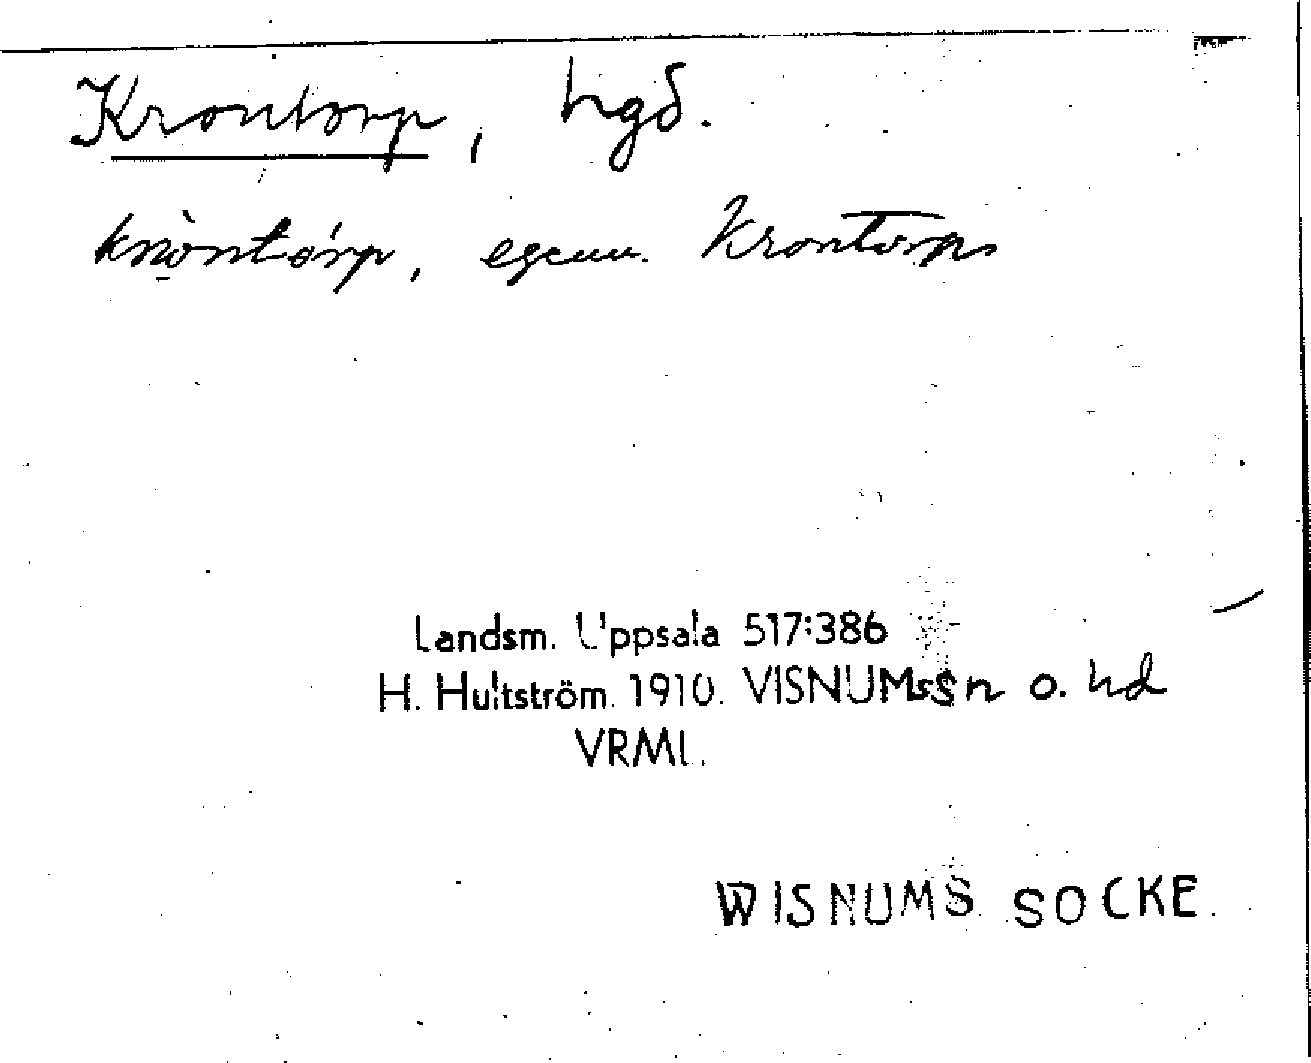 Krontorp, hgd.
kròntórp, egenn. Krontorps
Landsm. Uppsala 517:386
H. Hultström. 1910. VISNUMs sn o. hd
VRML.
WISNUMS SOCKE.